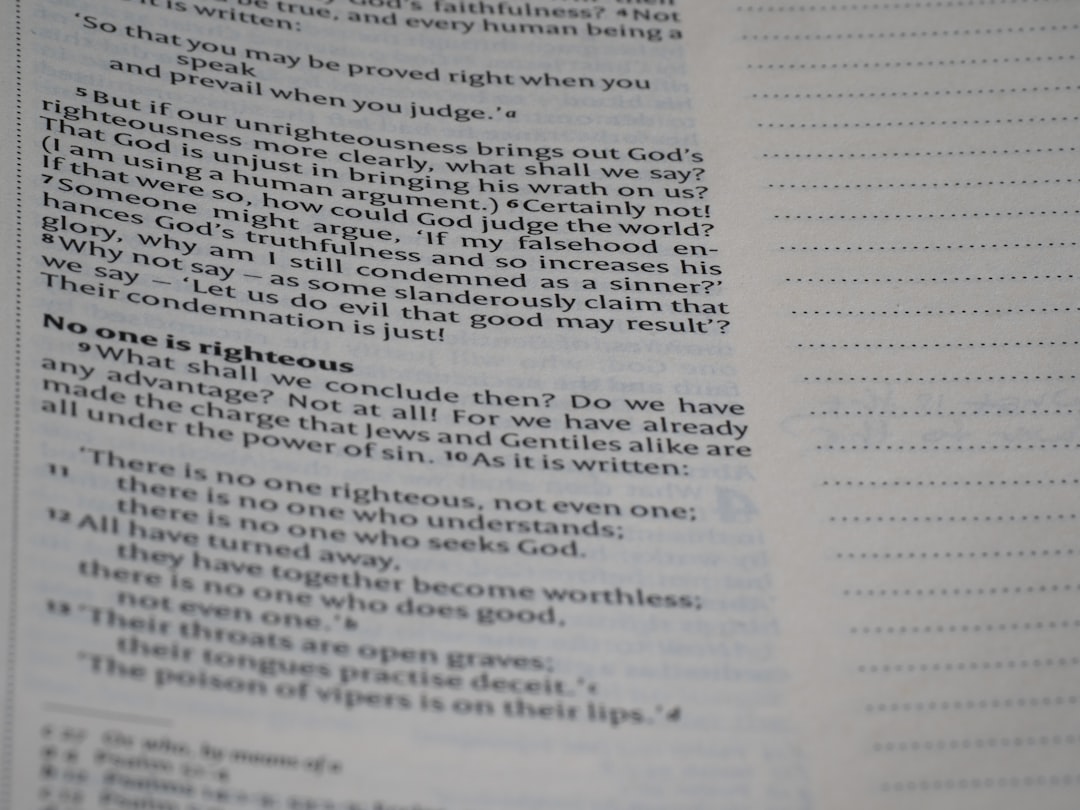 God's faithfulness? ⁴Not
be true, and every human being a
it is written:
‘So that you may be proved right when you
speak
and prevail when you judge.’ᵃ
⁵But if our unrighteousness brings out God’s
righteousness more clearly, what shall we say?
That God is unjust in bringing his wrath on us?
(I am using a human argument.) ⁶Certainly not!
If that were so, how could God judge the world?
⁷Someone might argue, ‘If my falsehood en-
hances God’s truthfulness and so increases his
glory, why am I still condemned as a sinner?’
⁸Why not say – as some slanderously claim that
we say – ‘Let us do evil that good may result’?
Their condemnation is just!
No one is righteous
⁹What shall we conclude then? Do we have
any advantage? Not at all! For we have already
made the charge that Jews and Gentiles alike are
all under the power of sin. ¹⁰As it is written:
‘There is no one righteous, not even one;
¹¹ there is no one who understands;
there is no one who seeks God.
¹² All have turned away,
they have together become worthless;
there is no one who does good,
not even one.’ᵇ
¹³ ‘Their throats are open graves;
their tongues practise deceit.’ᶜ
‘The poison of vipers is on their lips.’ᵈ
Or who, by means of a
Psalm
Psalms
Psalm